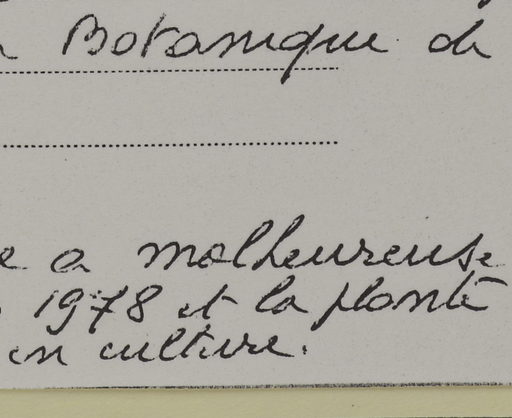 Botanique de
e a malheureuse
1978 et la plante
en culture.